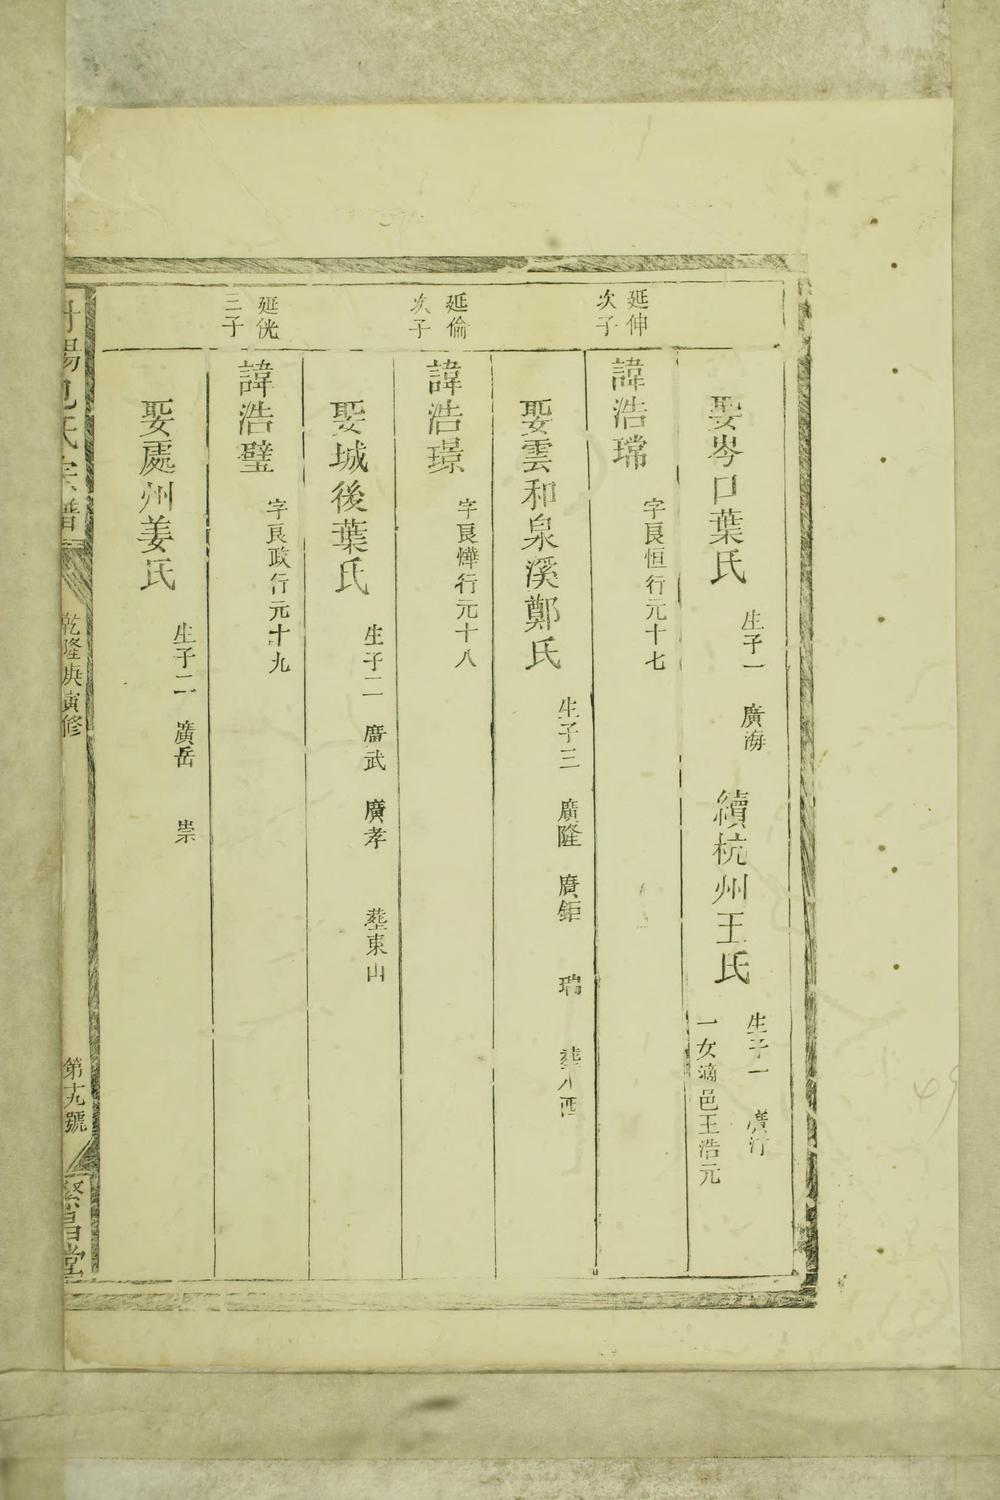 娶岑口葉氏
生子一 廣海
續杭州王氏
生子一 廣汀
一女適邑王浩元
延伸
次子
諱浩瑺
字良恒行元十七
娶雲和泉溪鄭氏
生子三 廣隆 廣鉅 瑞 葬八西
延倫
次子
諱浩璟
字良燁行元十八
娶城後葉氏
生子二 廣武 廣孝 葬東山
延侊
三子
諱浩璧
字良政行元十九
娶處州姜氏
生子二 廣岳 崇
陽包氏宗譜
乾隆庚寅修
第十九號
堂